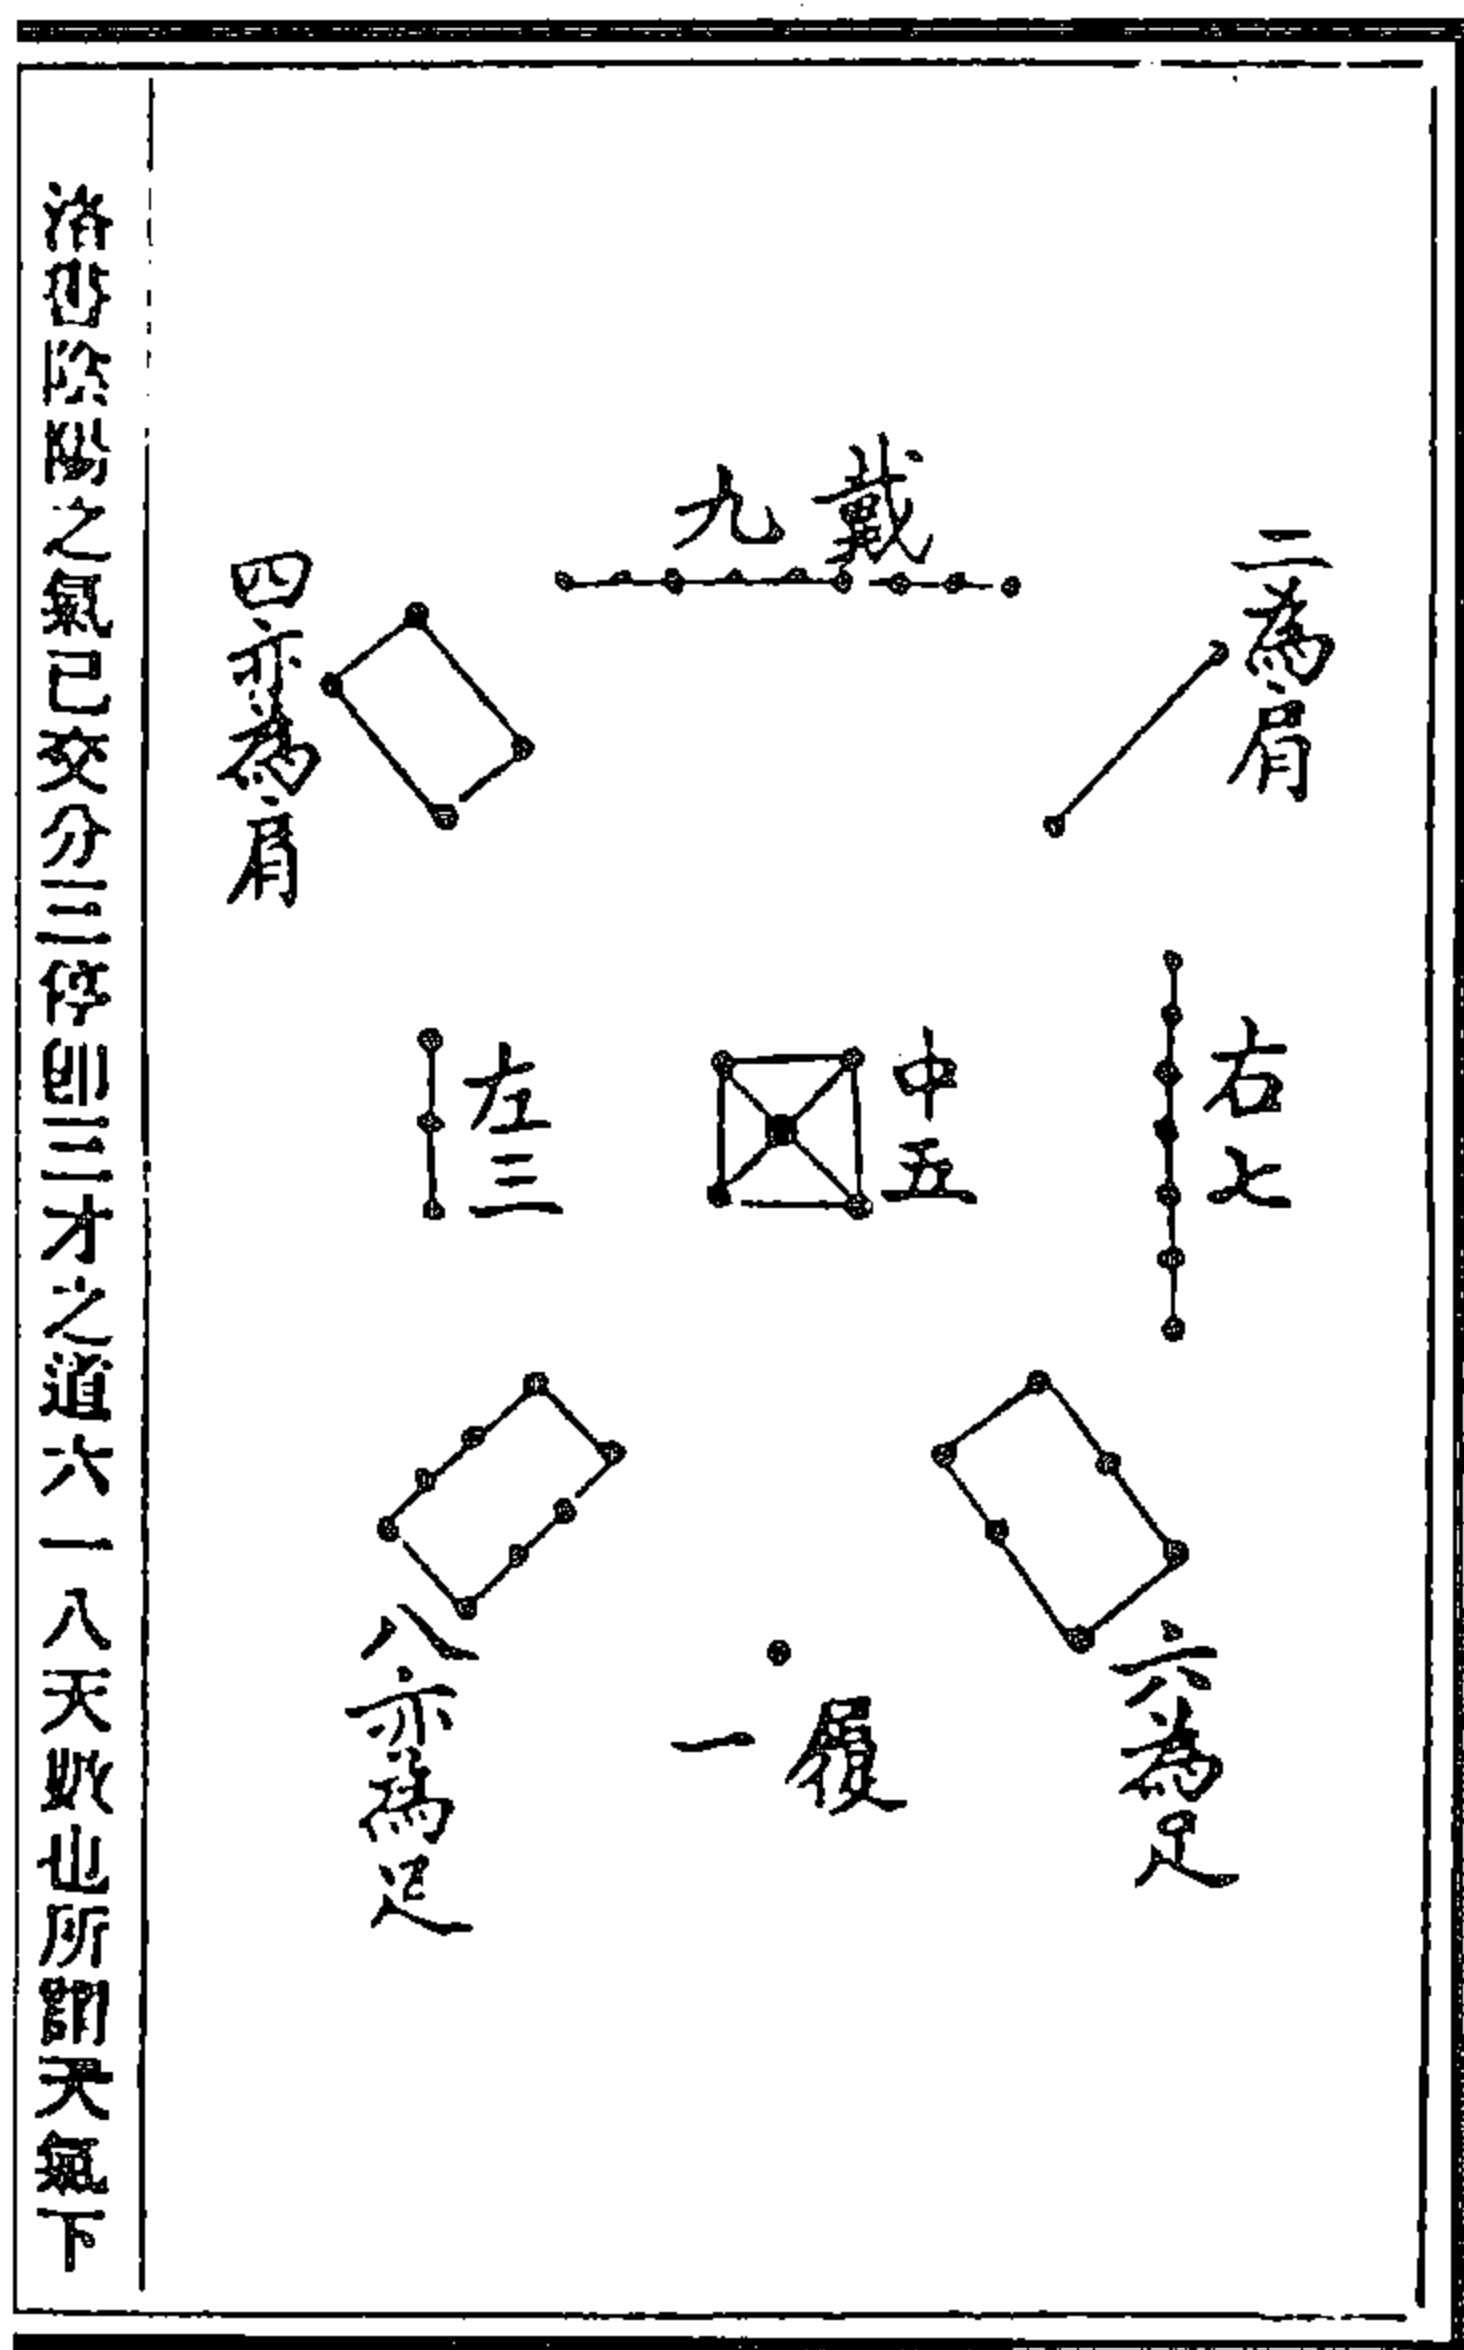 戴九
二為肩
四亦為肩
右七
中五
左三
六為足
履一
八亦為足
洛書陰陽之氣已交分三停即三才之道六一八天數也所謂天氣下